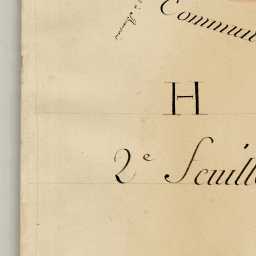 Commun
H
2e Feuille